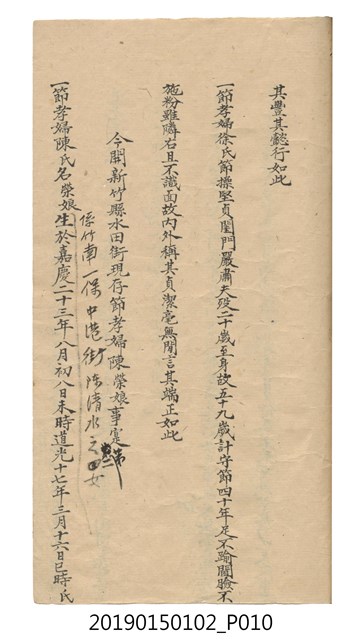 其豐其懿行如此
一節孝婦徐氏節操堅貞閨門嚴肅夫歿二十歲至身故五十九歲計守節四十年足不踰閫臉不
施粉雖隣右且不識面故內外稱其貞潔毫無閒言其端正如此
今開新竹縣水田街現存節孝婦陳榮娘事寔
係竹南一保中港街陈清水之女
一節孝婦陳氏名榮娘生於嘉慶二十三年八月初八日未時道光十七年三月十六日巳時氏
20190150102_P010